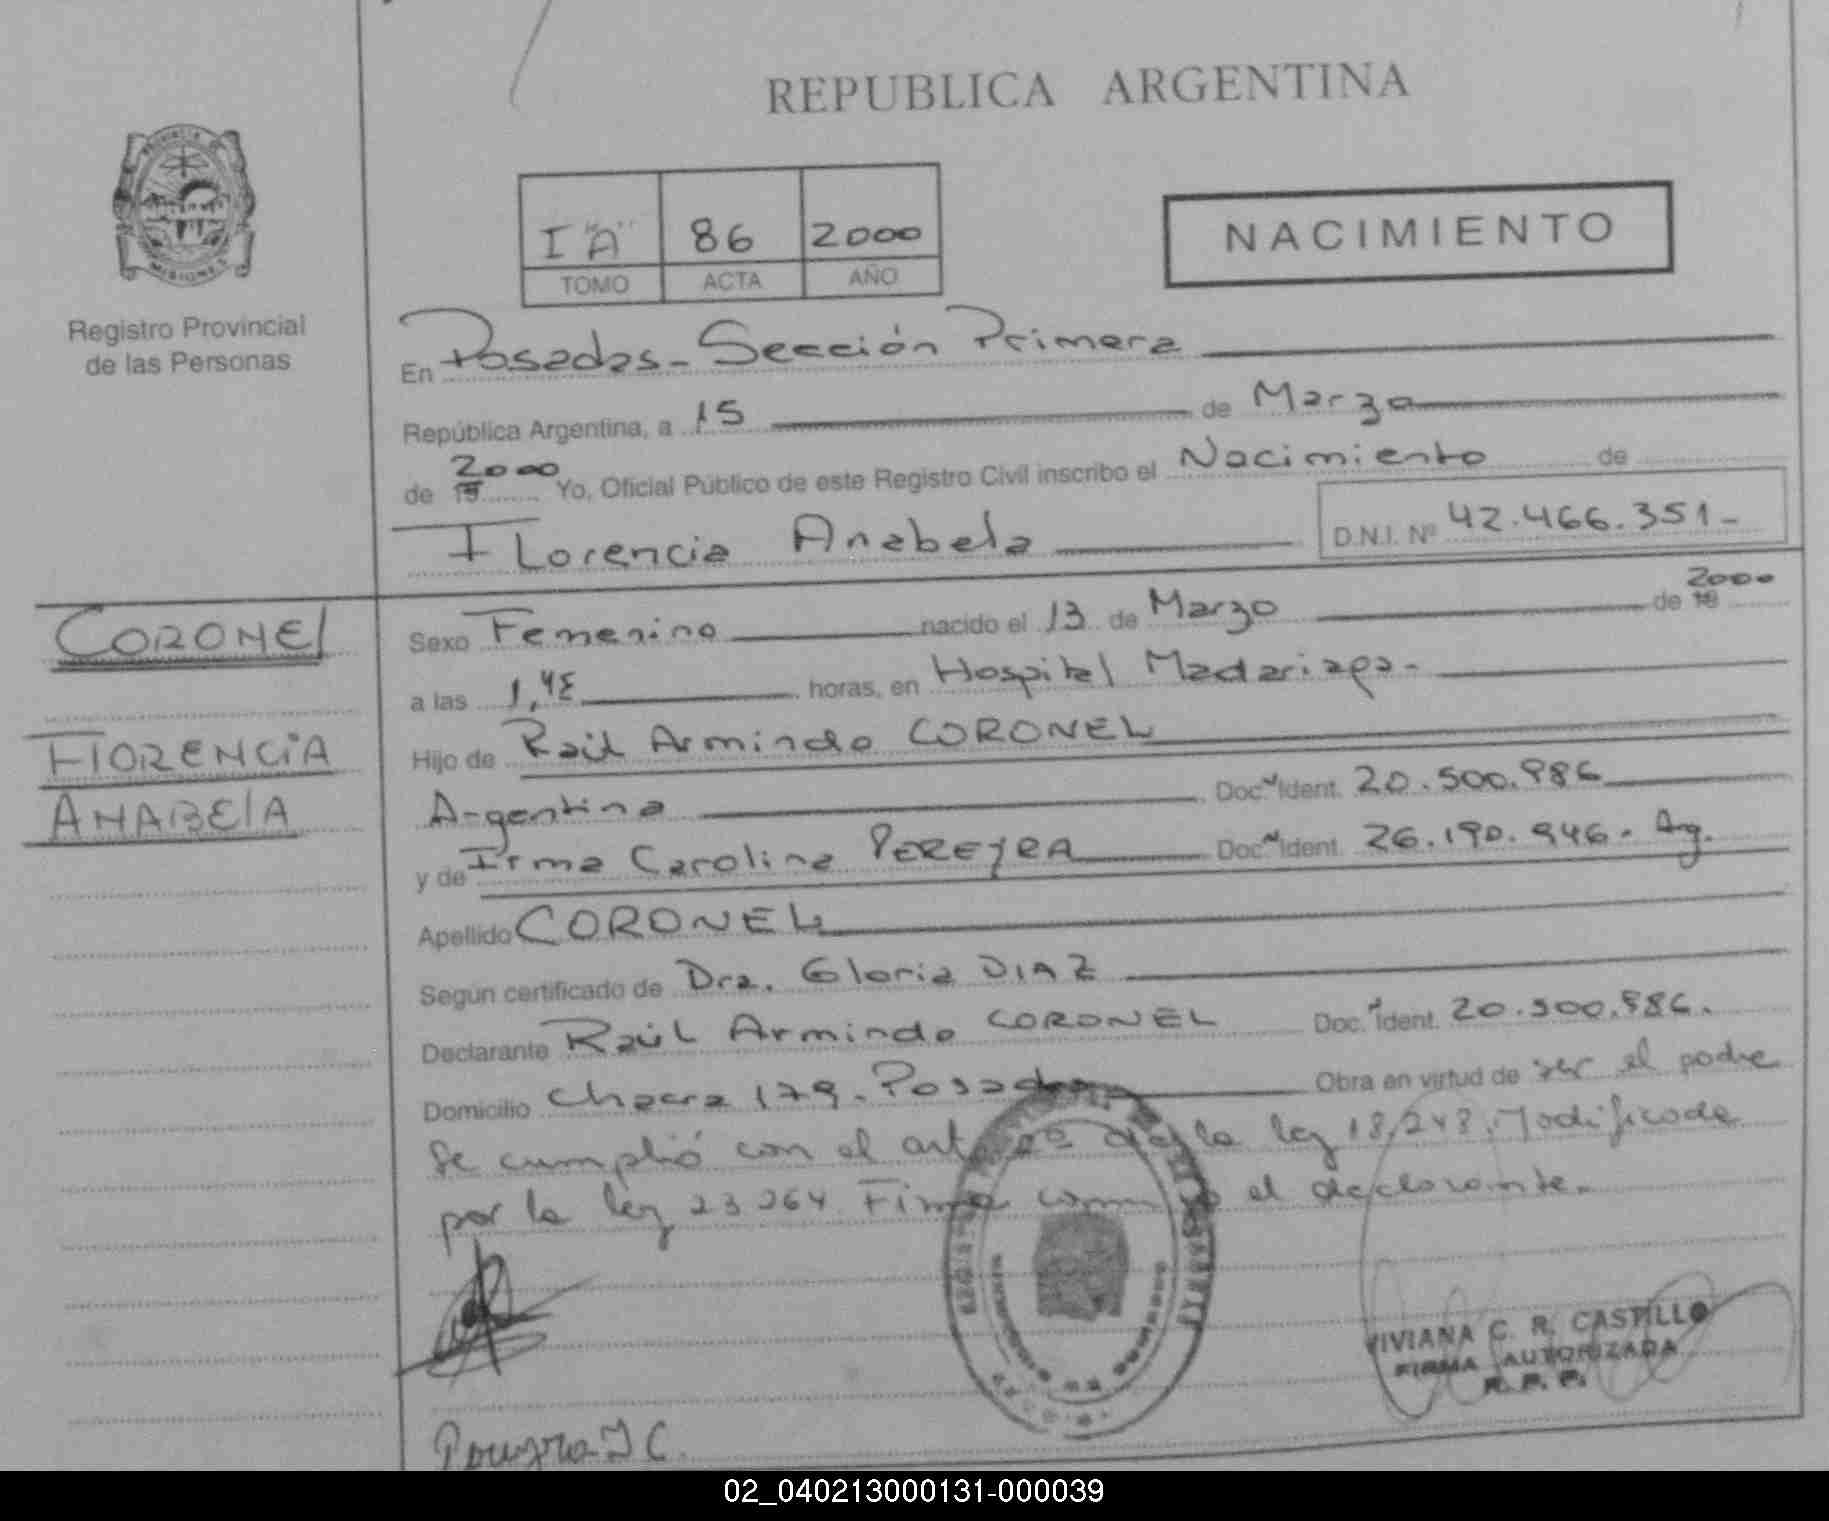 REPUBLICA ARGENTINA
PROVINCIA DE
MISIONES
Registro Provincial
de las Personas
I "A" 86 2000
TOMO ACTA AÑO
NACIMIENTO
En Posadas - Sección Primera
República Argentina, a 15 de Marzo
de 2000 19 Yo, Oficial Público de este Registro Civil inscribo el Nacimiento de
Florencia Anabela D.N.I. Nº 42.466.351-
CORONEL
FLORENCIA
ANABELA
Sexo Femenino nacido el 13 de Marzo de 2000 19
a las 1,45 horas, en Hospital Madariaga-
Hijo de Raúl Armindo CORONEL
Argentino Doc. Ident. 20.500.986
y de Irma Carolina PEREYRA Doc. Ident. 26.190.946. Arg.
Apellido CORONEL
Según certificado de Dra. Gloria DIAZ
Declarante Raúl Armindo CORONEL Doc. Ident. 20.500.986.
Domicilio Chacra 179. Posadas Obra en virtud de ser el padre
Se cumplió con el art. de la ley 18.248. Modificada
por la ley 23264 Firma el declarante.
VIVIANA C. R. CASTILLO
FIRMA AUTORIZADA
R. P. P.
Pereyra I C.
02_040213000131-000039